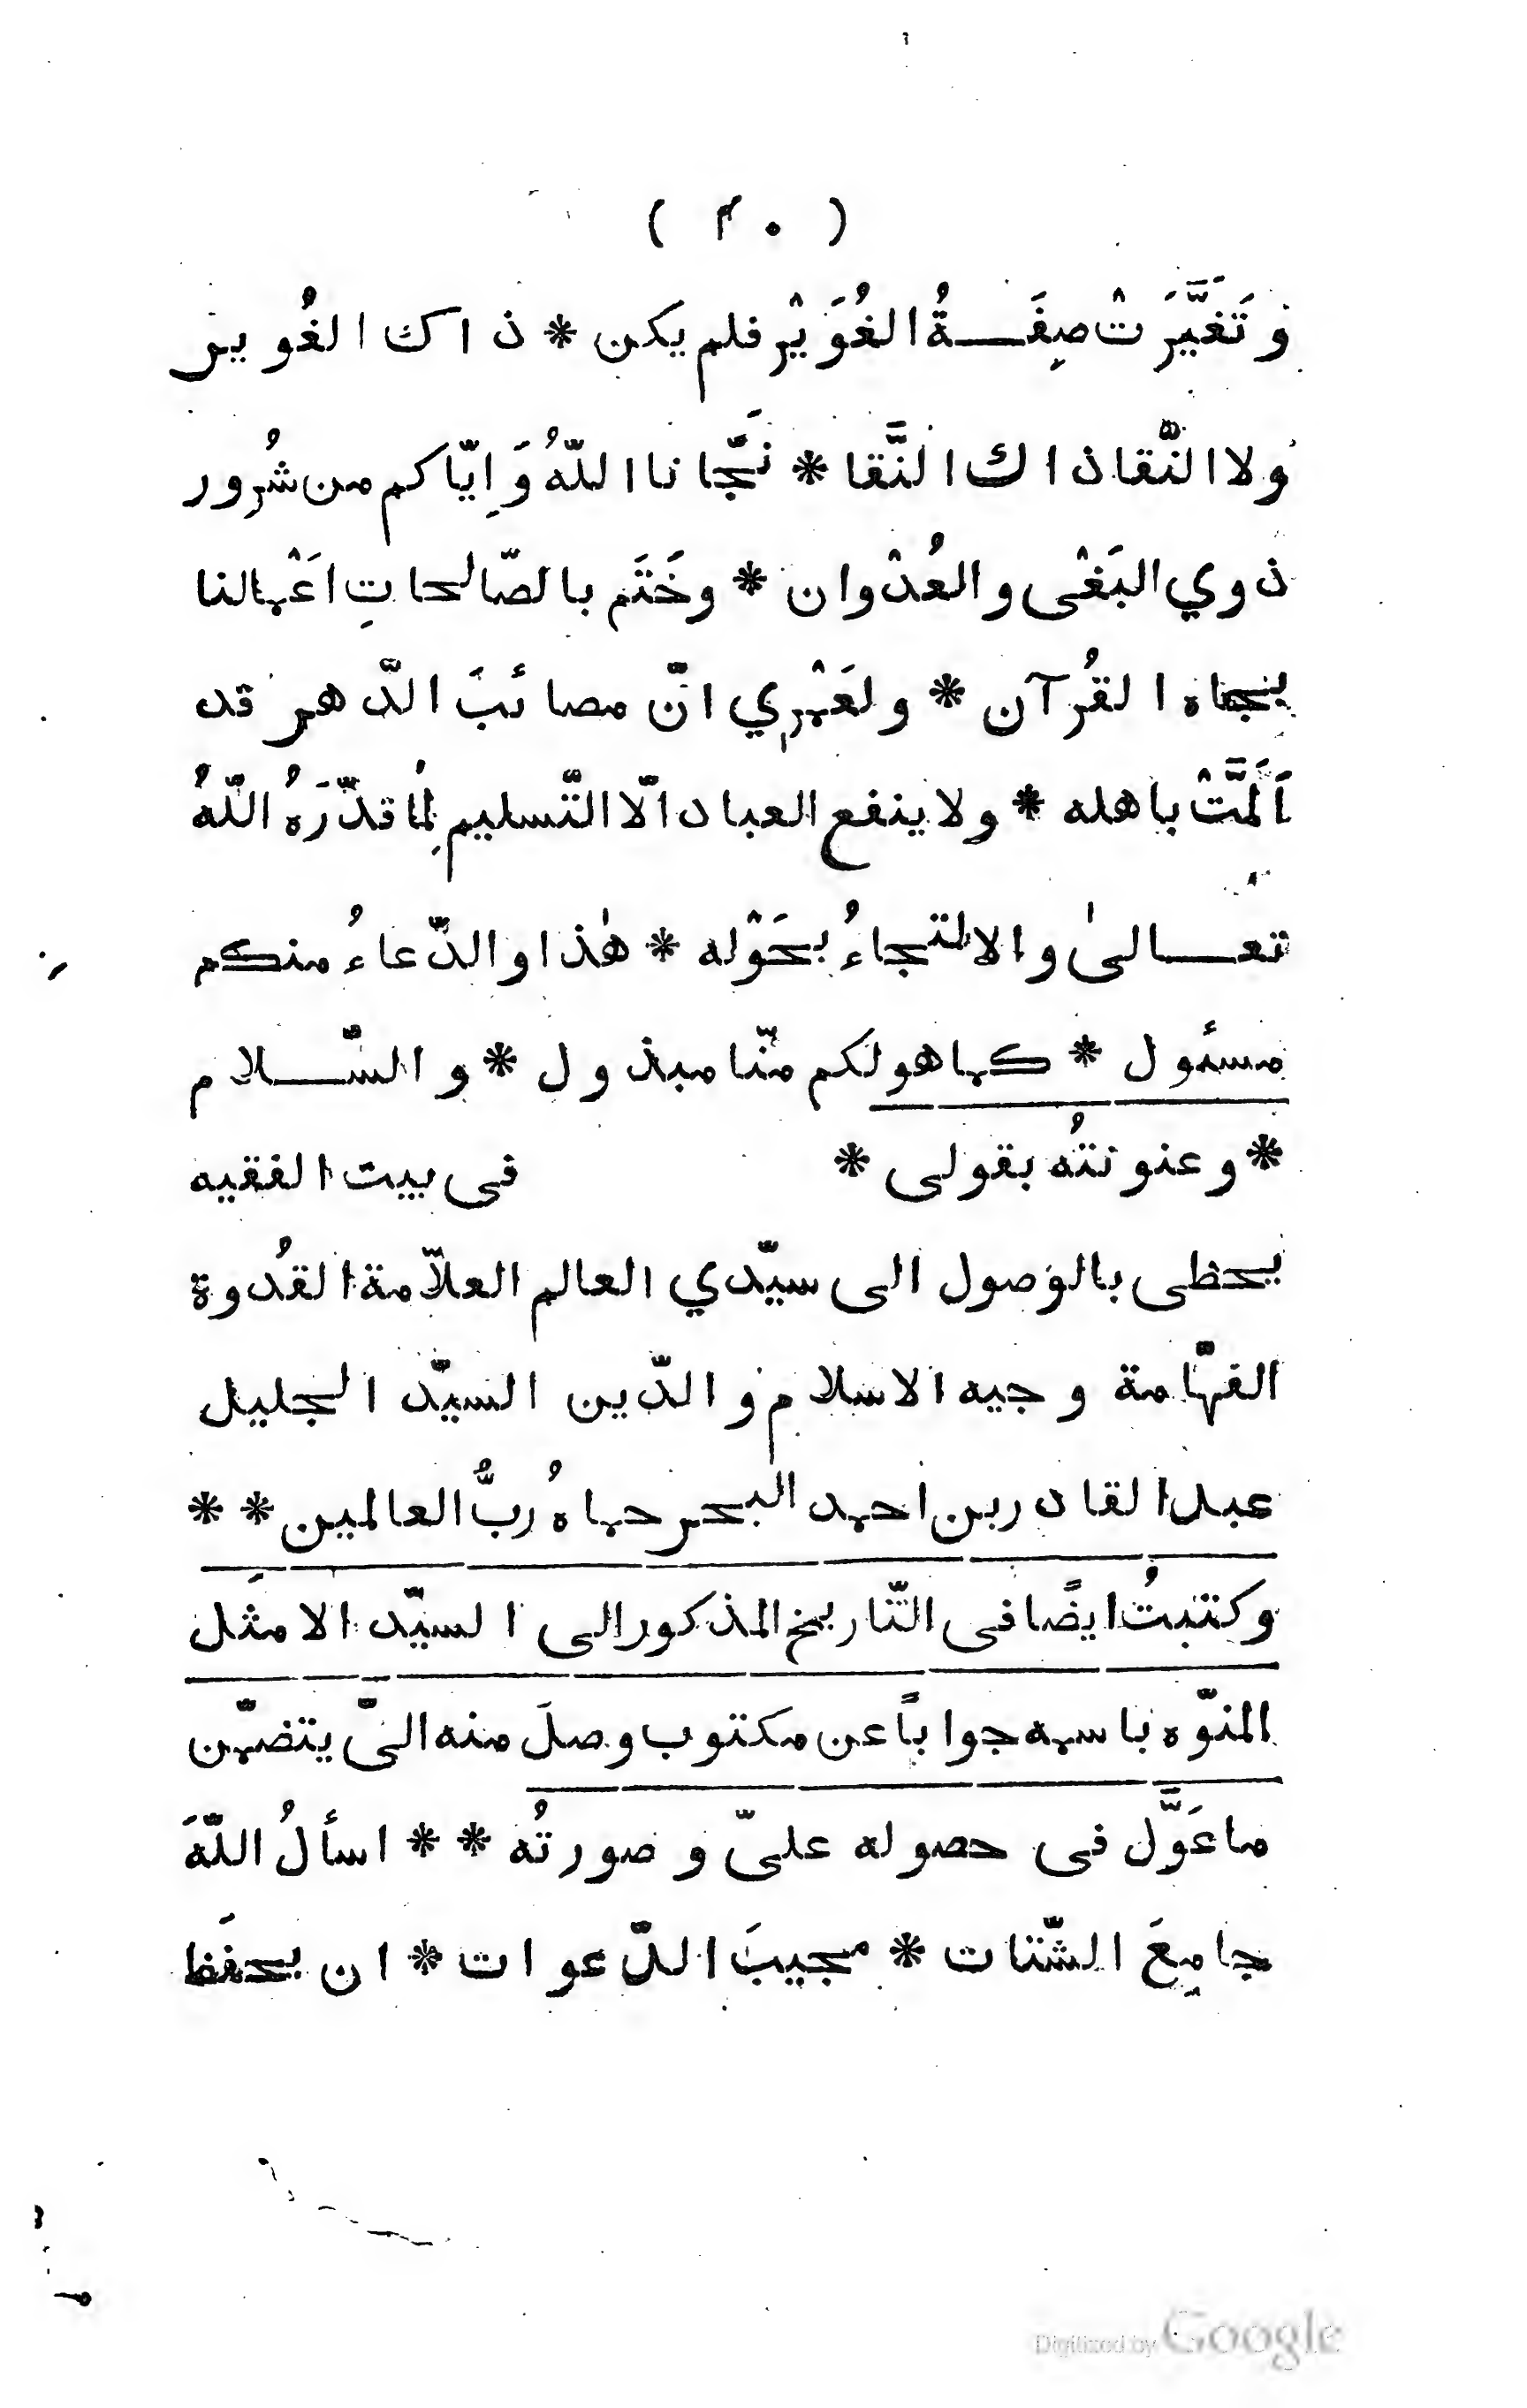 ( ۴۰ )
وَتَغَيَّرَتْ صِفَةُ الغُوَيْرِ فلم يكن * ذاك الغُوير
ولا النّقا ذاك النَّقا * نَجّانا اللّهُ وَاِيّاكم من شُرور
ذوي البَغْى والعُدْوان * وخَتَم بالصّالحاتِ اعْمالنا
بجاه القُرآن * ولعَمْرِي انّ مصائبَ الدّهر قد
اَلَمَّتْ باهله * ولا ينفع العباد الّا التّسليم لِمُا قدّرَهُ اللّهُ
تعالىٰ والالتجاءُ بحَوْله * هٰذا والدّعاءُ منكم
مسئول * كما هو لكم منّا مبذول * والسّلام
* وعنونتُه بقولى * فى بيت الفقيه
يحظى بالوصول الى سيّدي العالم العلّامة القُدوة
الفهّامة وجيه الاسلام والدّين السيّد الجليل
عبد القادر بن احمد البحر حماهُ ربُّ العالمين * *
وكتبتُ ايضًا فى التّاريخ المذكور الى السيّد الامثَل
المنوّه باسمه جوابًا عن مكتوب وصلَ منه الىّ يتضمّن
ما عَوَّل فى حصوله علىّ وصورتُه * * اسألُ اللّهَ
جامِعَ الشّتات * مجيبَ الدّعوات * ان يحفَظ
Digitized by Google